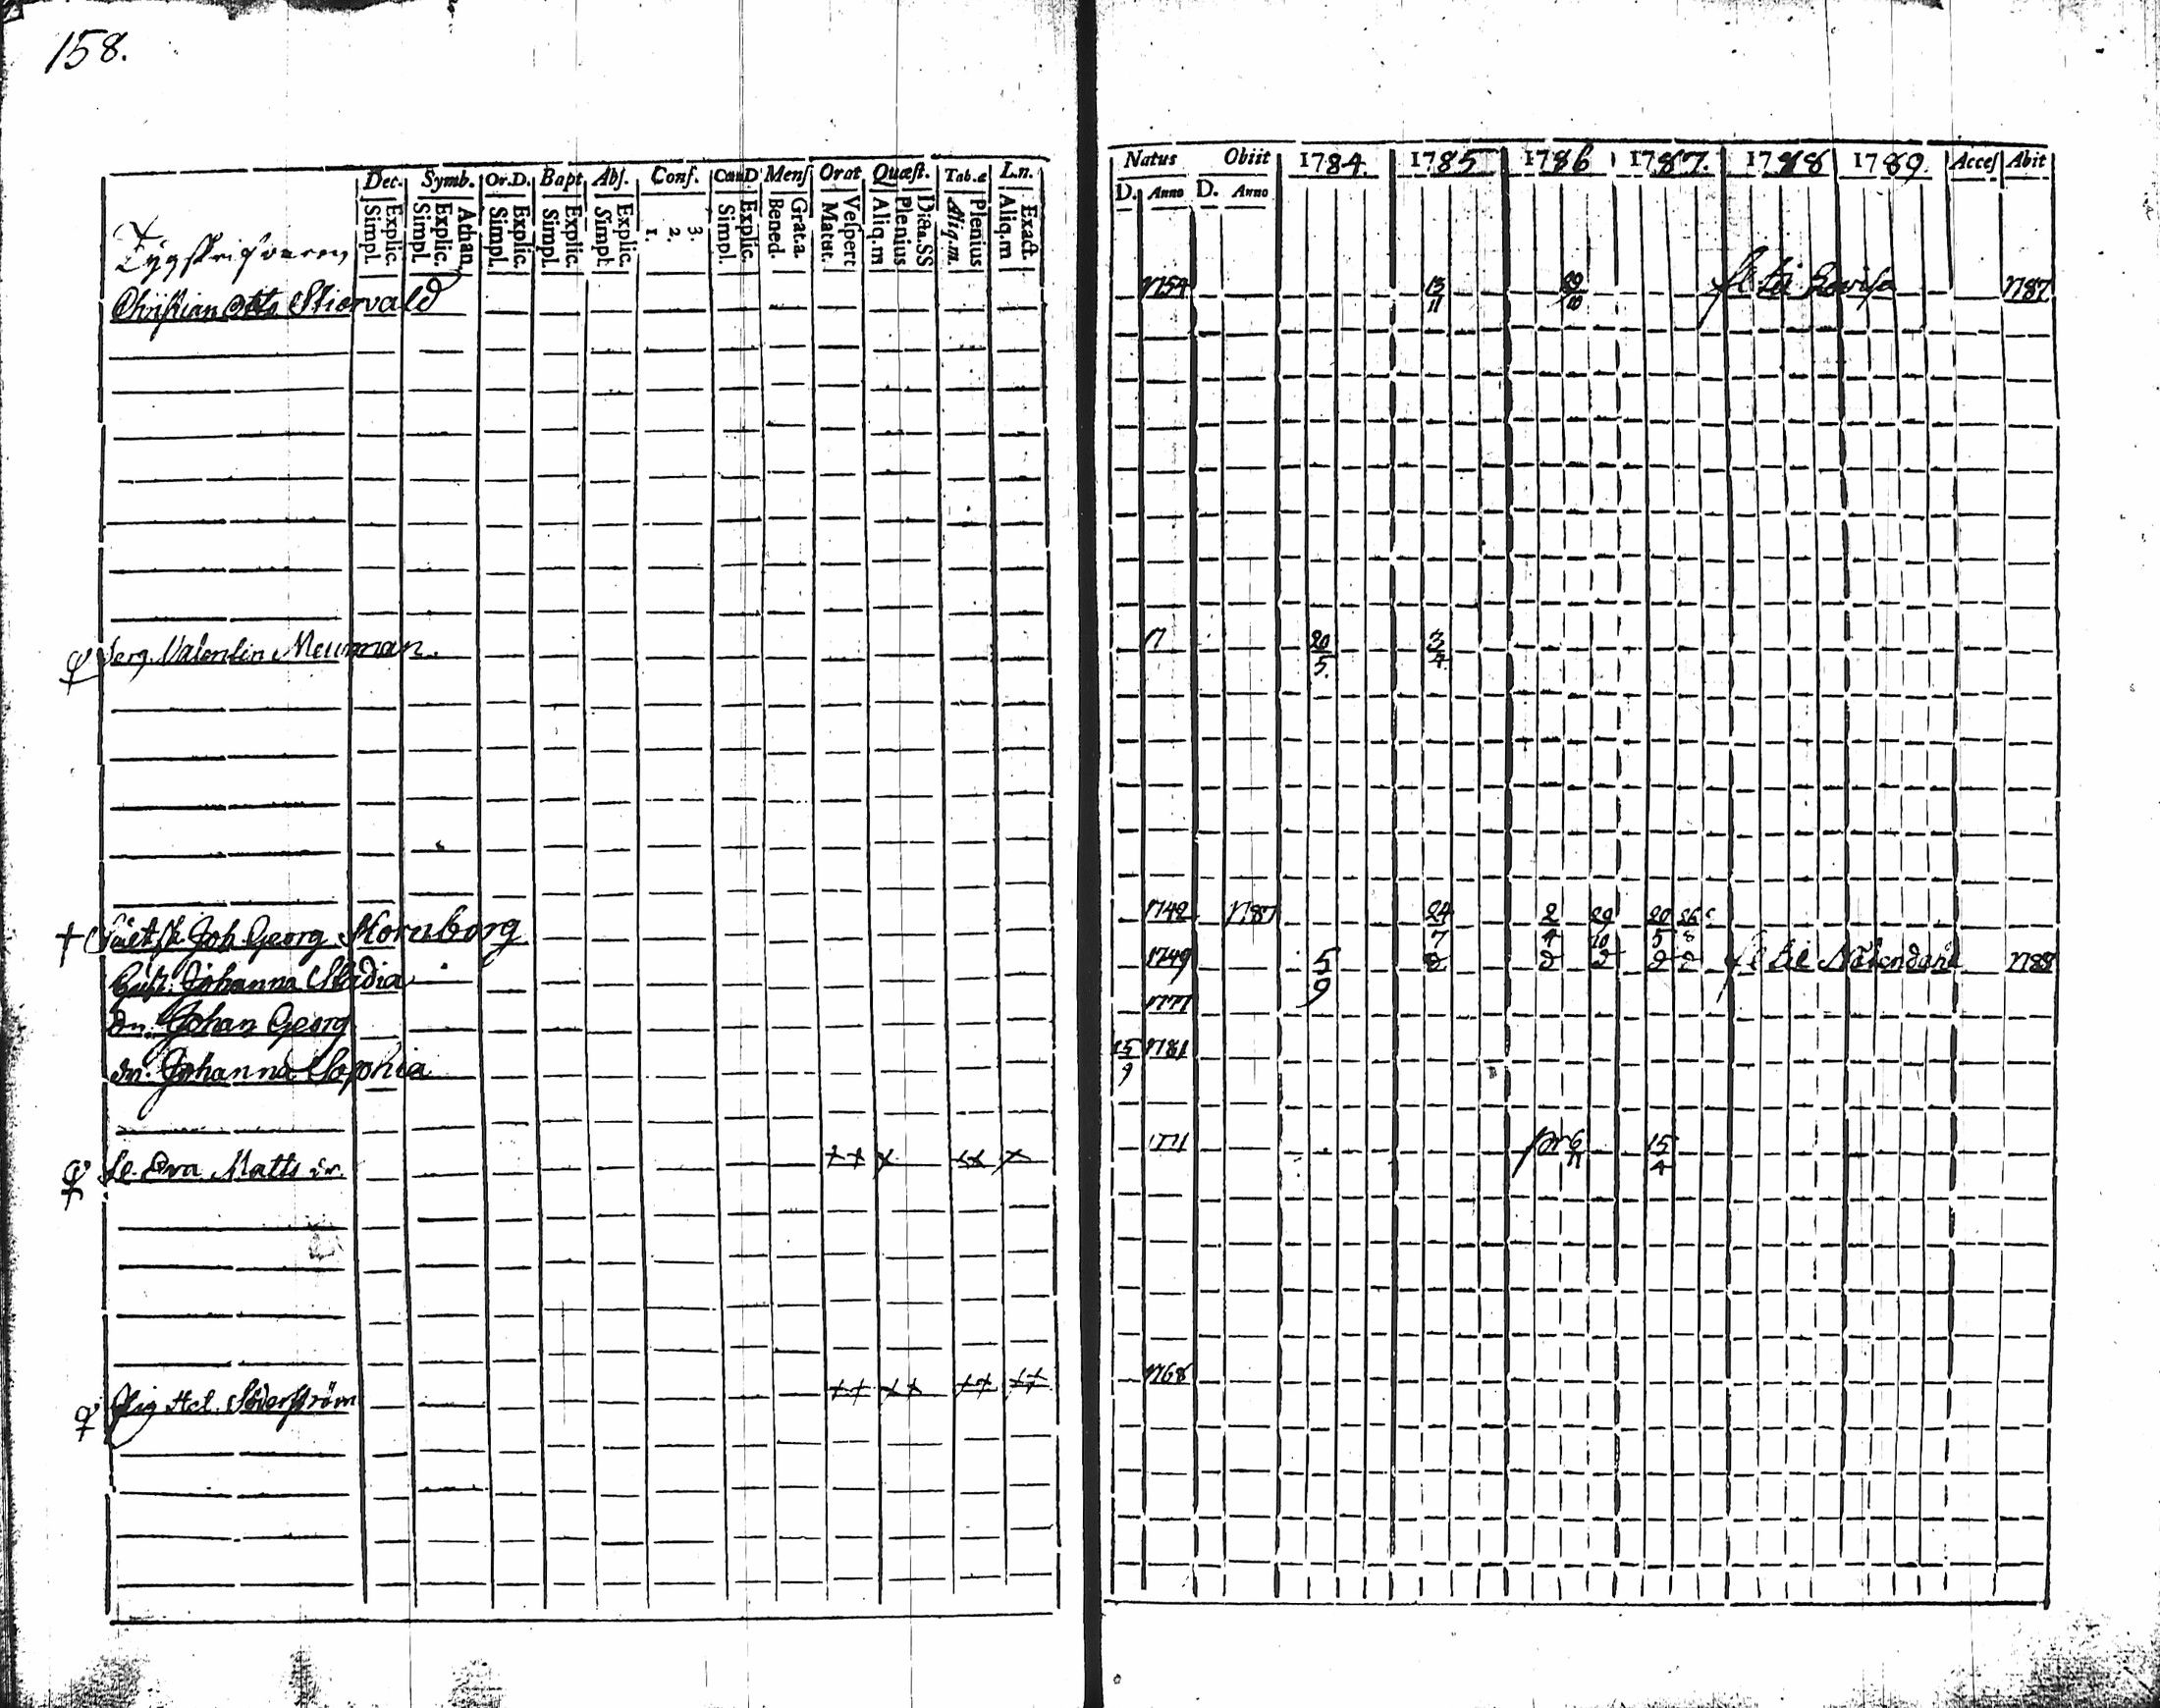 158.
Dec. Symb. Or.D. Bapt Abs. Conf. CœnD Mens Orat Quæst. Tab.æ L.n.
Simpl. Explic. Simpl. Explic. Athan. Simpl. Explic. Simpl. Explic. Simpl. Explic. 1. 2. 3. Simpl. Explic. Bened. Grat.a. Matut. Vespert Aliq.m Plenius Dicta.SS Aliq.m. Plenius Aliq.m Exact.
Natus Obiit 1784. 1785 1786 1787. 1788 1789. Acces Abit
D. Anno D. Anno
Tygskrifvaren
Christian Otto Stiervald 1754 13/11 29/10 fl. til Lovisa 1787
Serg. Valentin Meurman. 17 20/5. 3/4
Joh. Georg 1742 1787 24/7 2/4 29/10 20/5 26/8
Hust. Johanna 1749 5/9 2 2 2 2 2 fl til Nådendahl 1788
dn. Johan Georg 1777
dr. Johanna Sophia 15/9 1781
Eva Matts dr. ++ x ++ x 15/4
Hel. Söderström ++ ++ ++ ++ 1768